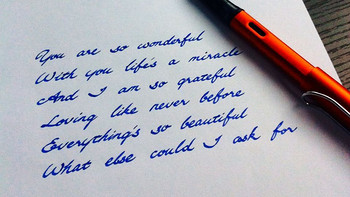 You are so wonderful
With you life's a miracle
And I am so grateful
Loving like never before
Everything's so beautiful
What else could I ask for